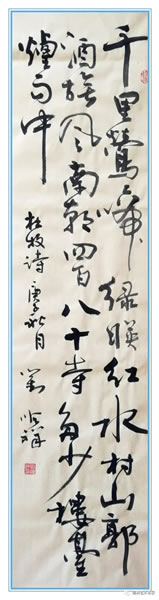 千里鶯啼绿暎红水村山郭
酒旗风南朝四百八十寺多少楼臺
煙雨中
杜牧诗 庚子秋月 刘